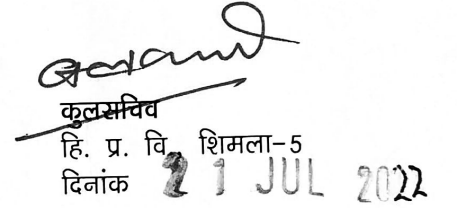 कुलसचिव
हि. प्र. वि शिमला-5
दिनांक 21 JUL 2022